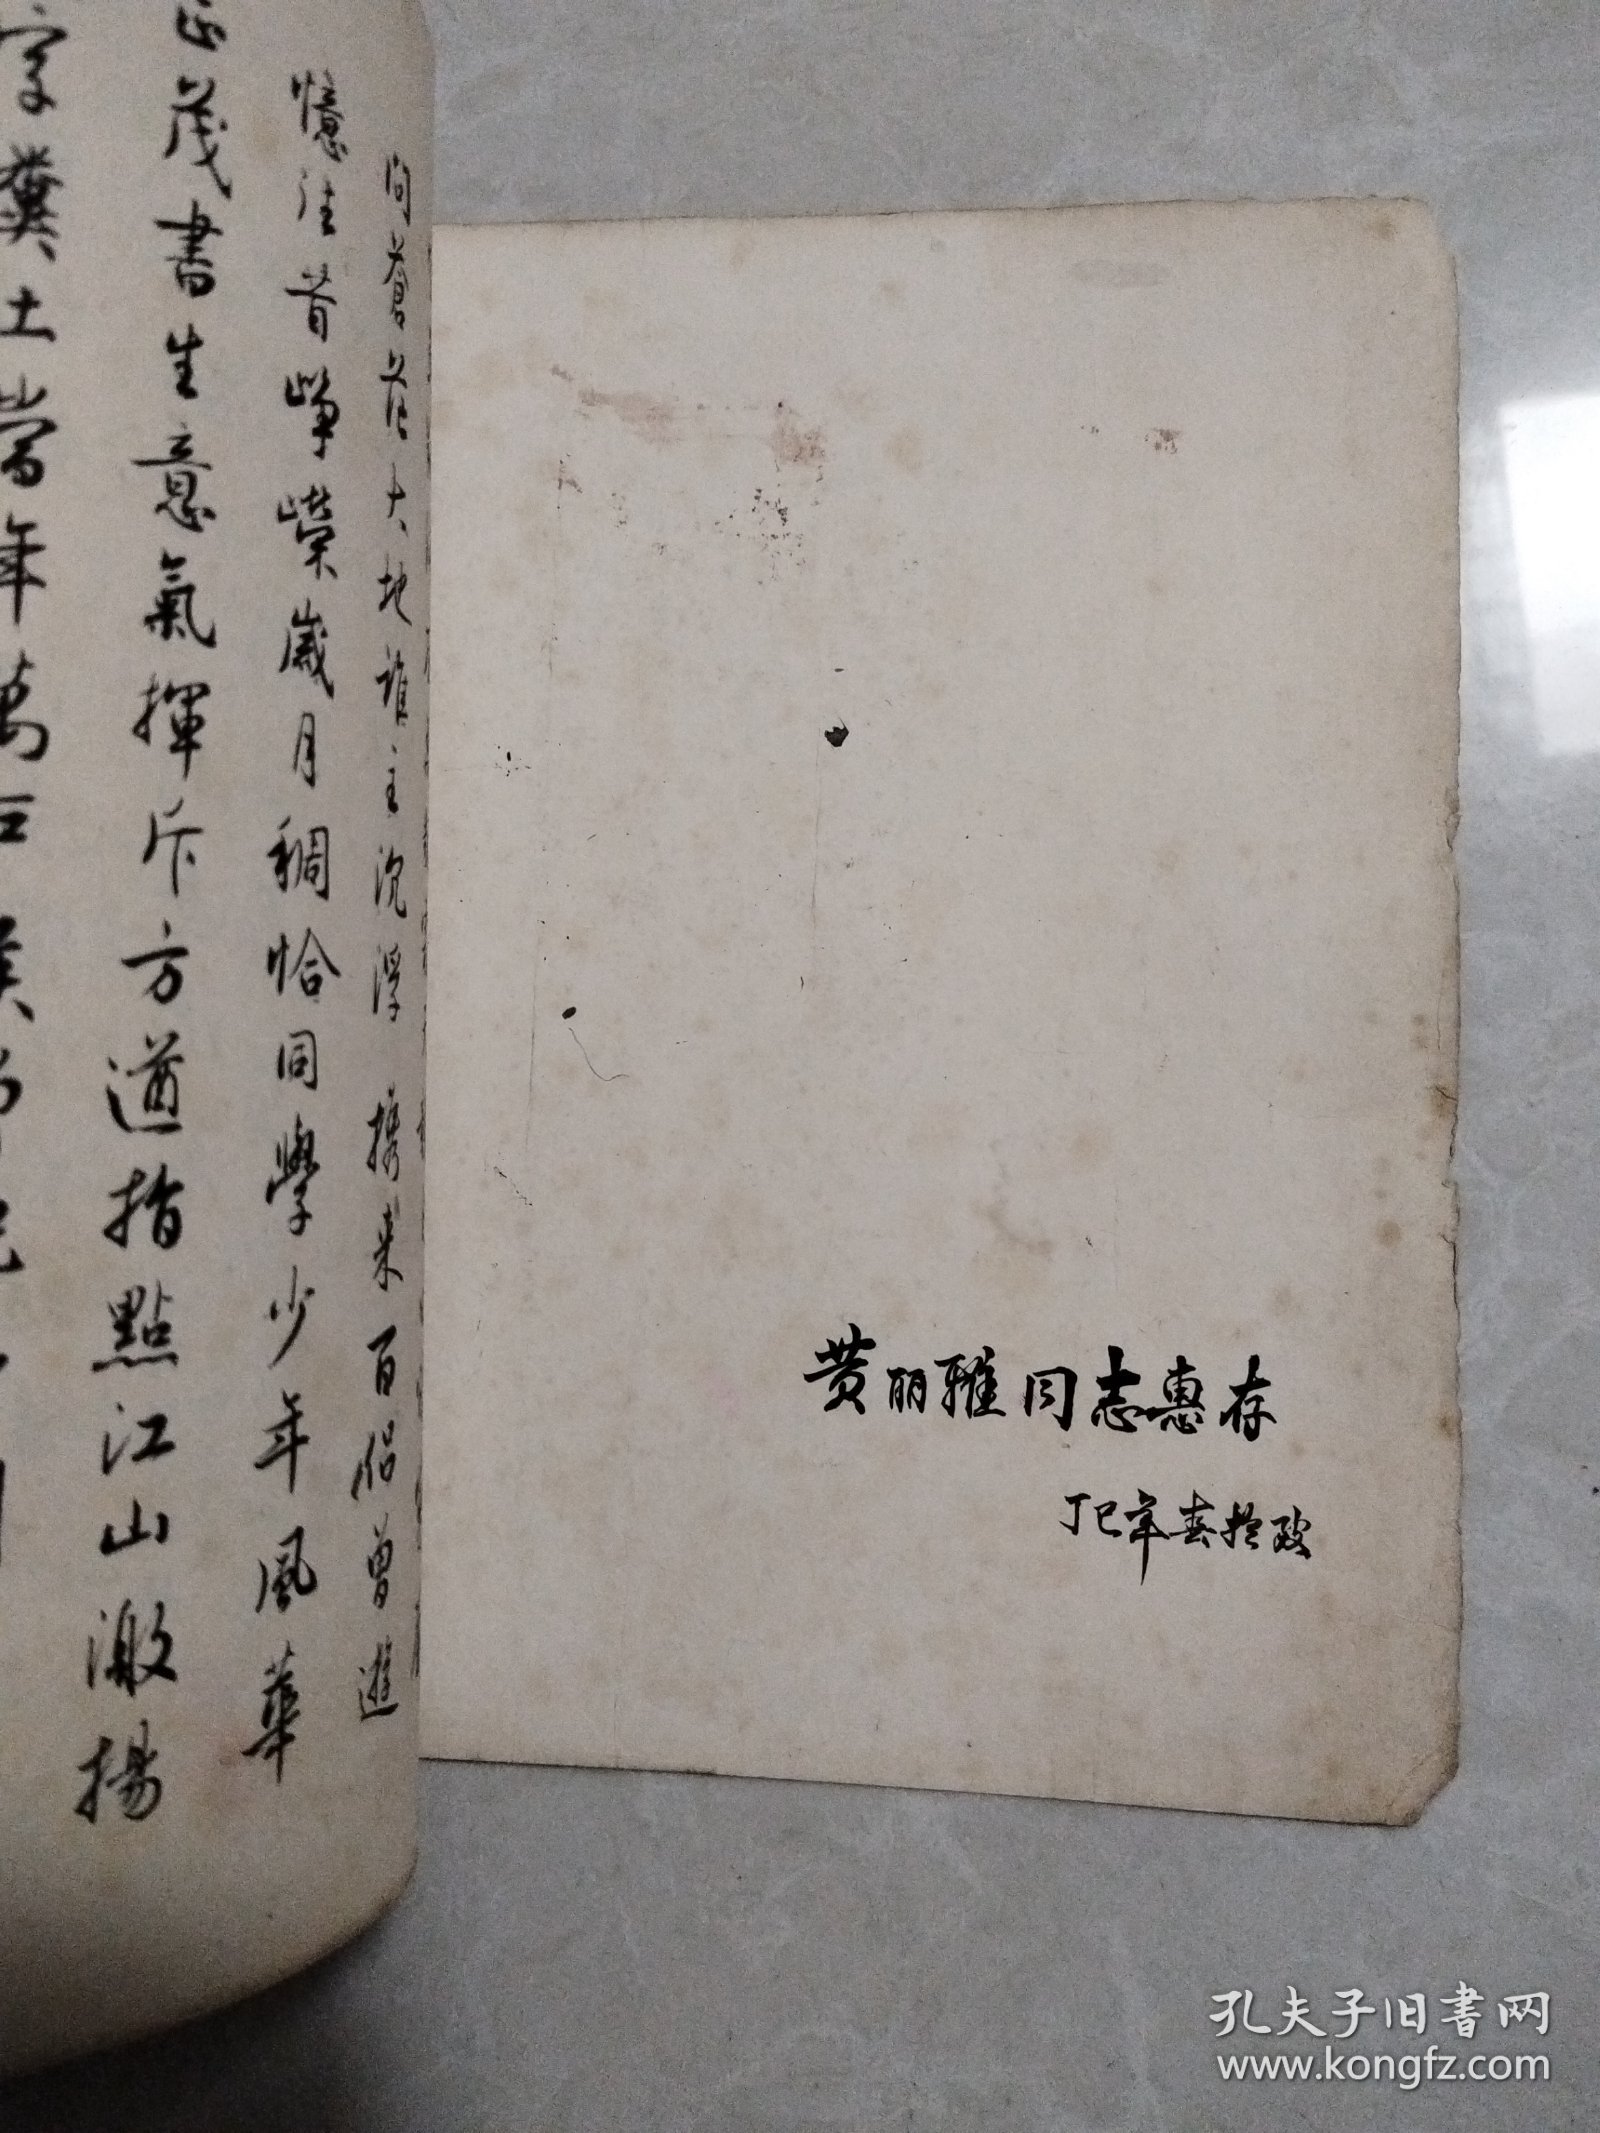 問蒼茫大地誰主沉浮 携来百侣曾遊
憶往昔崢嶸歲月稠恰同學少年風華
正茂書生意氣揮斥方遒指點江山激揚
字糞土當年萬户侯
黄丽雅同志惠存
丁巳年春於政
孔夫子旧書网
www.kongfz.com